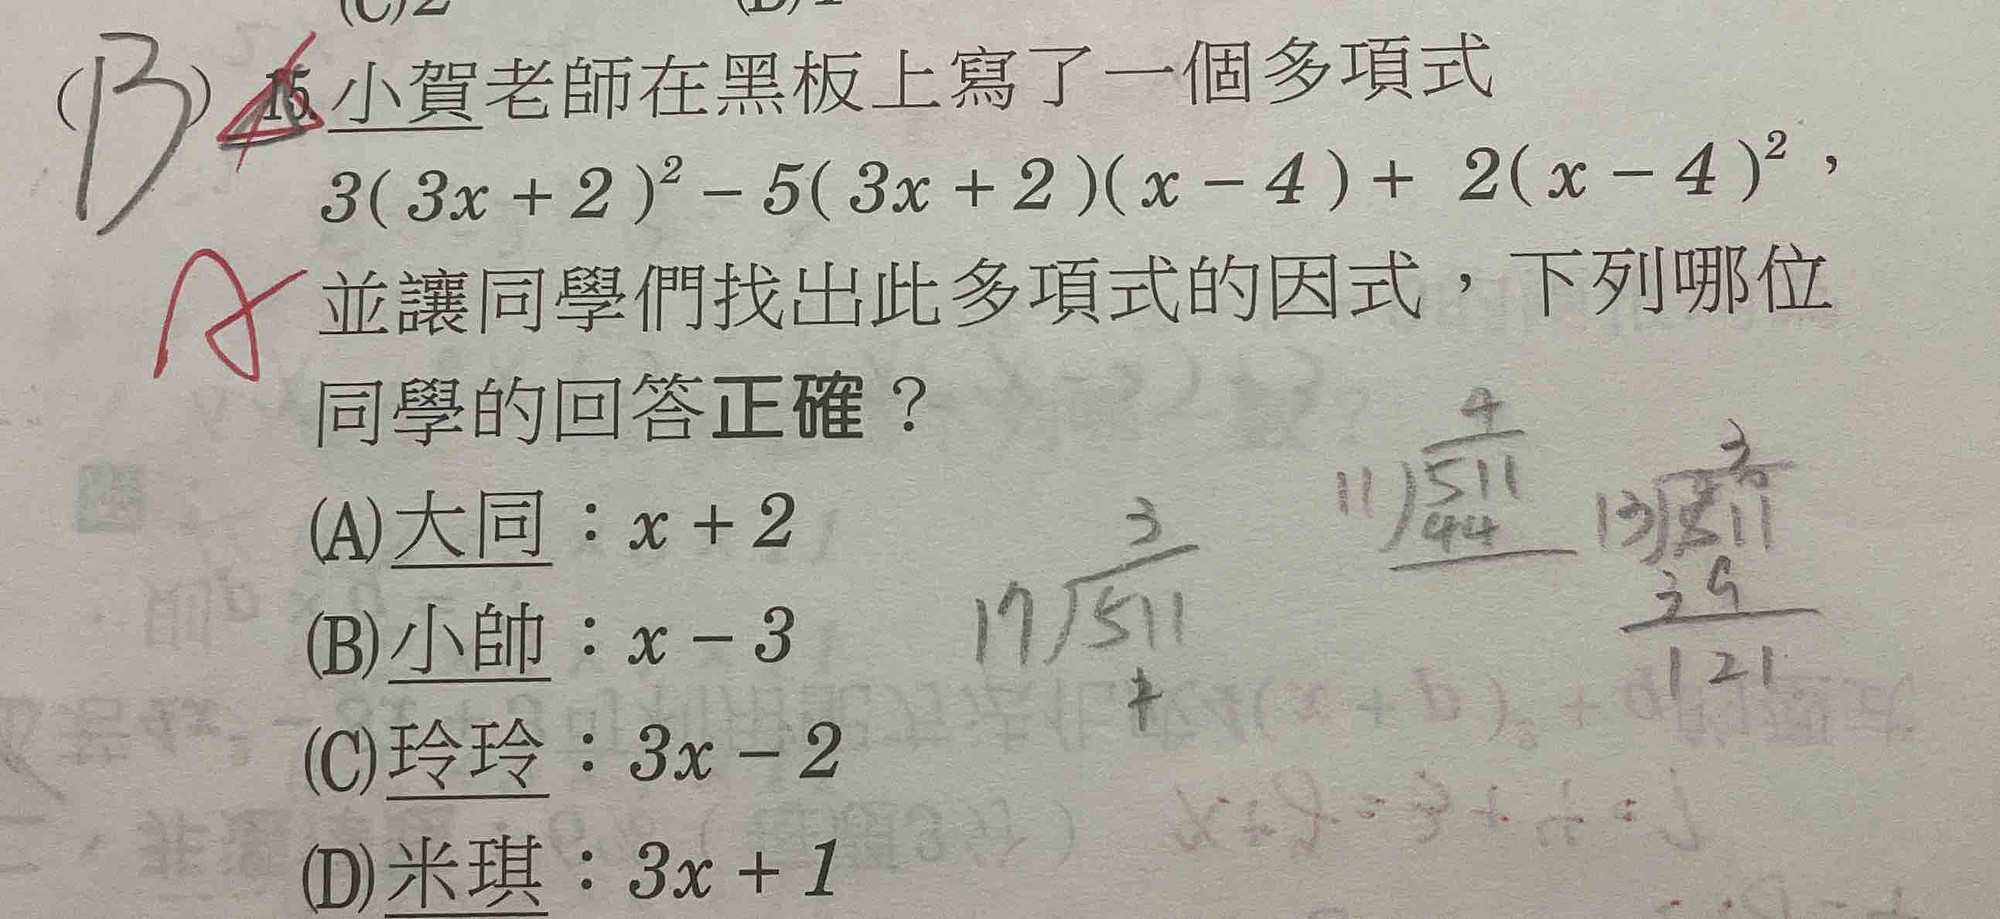 (C)2 (D)1
(B) 15.小賀老師在黑板上寫了一個多項式
3(3x+2)²−5(3x+2)(x−4)+2(x−4)²，
A 並讓同學們找出此多項式的因式，下列哪位
同學的回答正確？
(A)大同：x+2
(B)小帥：x−3
(C)玲玲：3x−2
(D)米琪：3x+1
3
17)511
7
4
11)511
44
3
13)511
39
121